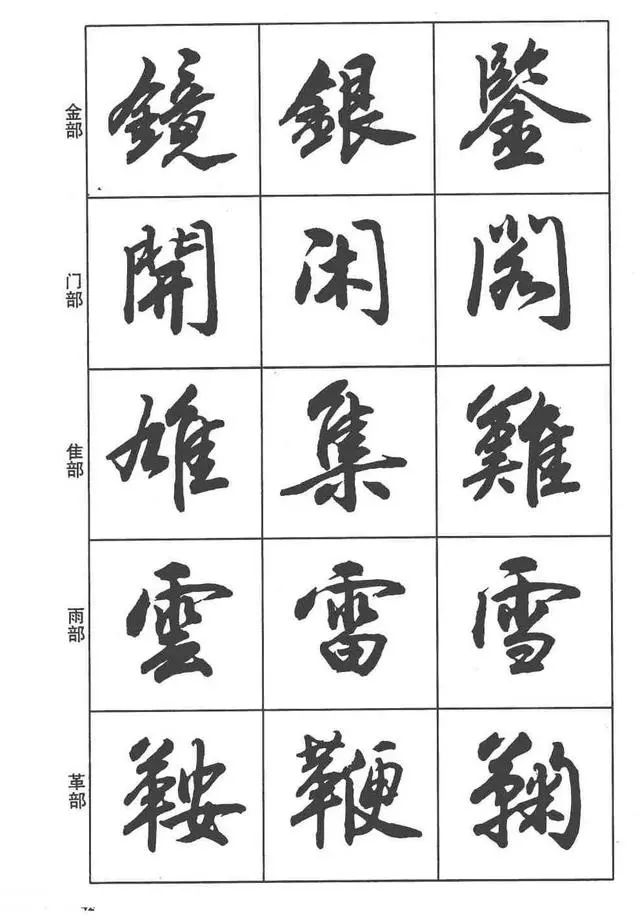 金部 鏡 銀 鑒
门部 開 闲 閣
隹部 雄 集 雞
雨部 雲 雷 雪
革部 鞍 鞭 鞠